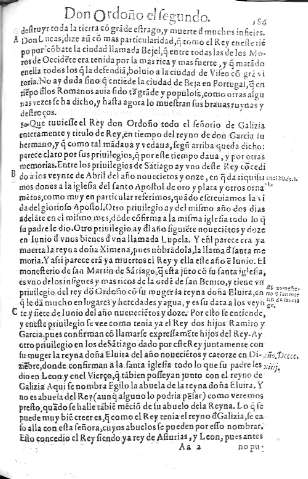 Don Ordoño el segundo. 184
destruyr toda la tierra cõ grãde estrago, y muerte d muchos infieles.
A Don Lucas, dize aũ cõ mas particularidad, q̃ como el Rey en este tiẽ
po por cõbate la ciudad llamada Bejel, q̃ entre todas las de los Mo-
ros de Occidẽte era tenida por la mas rica y mas fuerte, y q̃ matãdo
en ella todos los q̃ la defendiã, boluio a la ciudad de Viseo cõ grã vi
toria. No ay duda sino q̃ entiẽde la ciudad de Beja en Portugal, q̃ en
tiẽpo d̃ los Romanos auia sido tã grãde y populosa, como otras algu
nas vezes se ha dicho, y hasta agora lo muestran sus brauas ruynas y
destroços.
Que tuuiesse el Rey don Ordoño todo el señorio de Galizia
enteramente y titulo de Rey, en tiempo del reyno de don Garcia su
hermano, y q̃ como tal mãdaua y vedaua, segũ arriba queda dicho:
parece claro por sus priuilegios, q̃ por este tiempo daua, y por otras
memorias. Entre los priuilegios de Sãtiago ay vno deste Rey cõcedi
B do a los veynte de Abril del año nouecientos y doze, en q̃ da riquissi
mos dones a la iglesia del santo Apostol de oro y plata y otros orna
mẽtos, como muy en particular referimos, quãdo escreuiamos la vi
da del glorioso Apostol. Otro priuilegio ay del mismo año dos dias
adelãte en el mismo mes, dõde cõfirma a la misma iglesia todo lo q̃
su padre le dio. Otro priuilegio ay d̃l año siguiẽte noueciẽtos y doze
en Iunio d vnos bienes d vna llamada Lupela. Y en el parece era ya
muerta la reyna doña Ximena, pues nõbrãdola, la llama d̃ santa me
moria. Y assi parece erã ya muertos el Rey y ella este año ẽ Iunio. El
monesterio de san Martin de Sãtiago, q̃ esta jũto cõ su santa iglesia,
es vno de los insignes y mas ricos de la ordẽ de san Benito, tiene vn
priuilegio del rey dõ Ordoño cõ su muger la reyna doña Eluira, en
q̃ le dã mucho en lugares y heredades y agua, y es su data a los veyn
C te y siete de Iunio del año nouecientos y doze. Por esto se entiende,
y en este priuilegio se vee como tenia ya el Rey dos hijos Ramiro y
Garcia, pues confirman cõ llamarse expressamẽte hijos del Rey. Ay
otro priuilegio en los de Sãtiago dado por este Rey juntamente con
su muger la reyna doña Eluira del año nouecientos y catorze en Di-
ziẽbre, donde confirman a la santa iglesia todo lo que su padre les
dio en Leon y en el Vierço, q̃ tãbien posseyan junto con el reyno de
Galizia Aqui se nombra Egilo la abuela de la reyna doña Eluira. Y
no es abuela del Rey (aunq̃ alguno lo podria pẽsar) como veremos
presto, quãdo se halle tãbiẽ mẽciõ de su abuelo de la Reyna. Lo q̃ se
puede muy biẽ creer es, q̃ como el Rey tenia el reyno d̃ Galizia, se ca
so alla con esta señora, cuyos abuelos se pueden por esso nombrar.
Esto concedio el Rey siendo ya rey de Asturias, y Leon, pues antes
Aa 2 no pu-